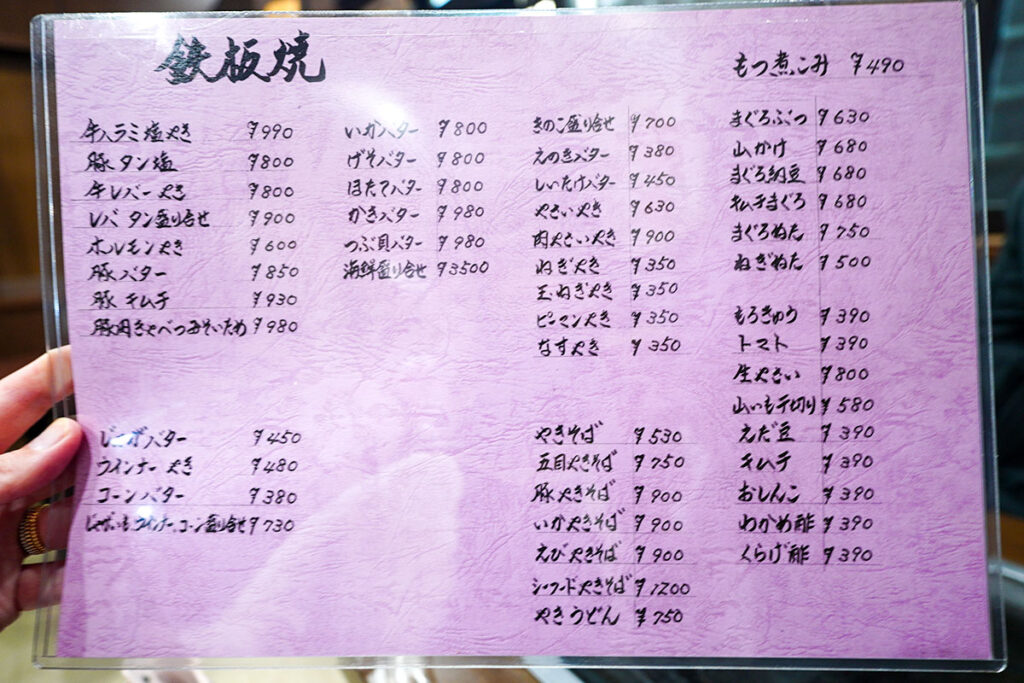 鉄板焼
牛ハラミ塩やき ¥990
豚タン塩 ¥800
牛レバーやき ¥800
レバ タン盛り合せ ¥900
ホルモンやき ¥600
豚バター ¥850
豚キムチ ¥930
豚肉きゃべつみそいため ¥980
じゃがバター ¥450
ウインナーやき ¥480
コーンバター ¥380
じゃがいも、ウインナー、コーン盛り合せ ¥730
いかバター ¥800
げそバター ¥800
ほたてバター ¥800
かきバター ¥980
つぶ貝バター ¥980
海鮮盛り合せ ¥3500
きのこ盛り合せ ¥700
えのきバター ¥380
しいたけバター ¥450
やさいやき ¥630
肉やさいやき ¥900
ねぎやき ¥350
玉ねぎやき ¥350
ピーマンやき ¥350
なすやき ¥350
やきそば ¥530
五目やきそば ¥750
豚やきそば ¥900
いかやきそば ¥900
えびやきそば ¥900
シーフードやきそば ¥1200
やきうどん ¥750
もつ煮こみ ¥490
まぐろぶつ ¥630
山かけ ¥680
まぐろ納豆 ¥680
キムチまぐろ ¥680
まぐろぬた ¥750
ねぎぬた ¥500
もろきゅう ¥390
トマト ¥390
生やさい ¥800
山いも千切り ¥580
えだ豆 ¥390
キムチ ¥390
おしんこ ¥390
わかめ酢 ¥390
くらげ酢 ¥390